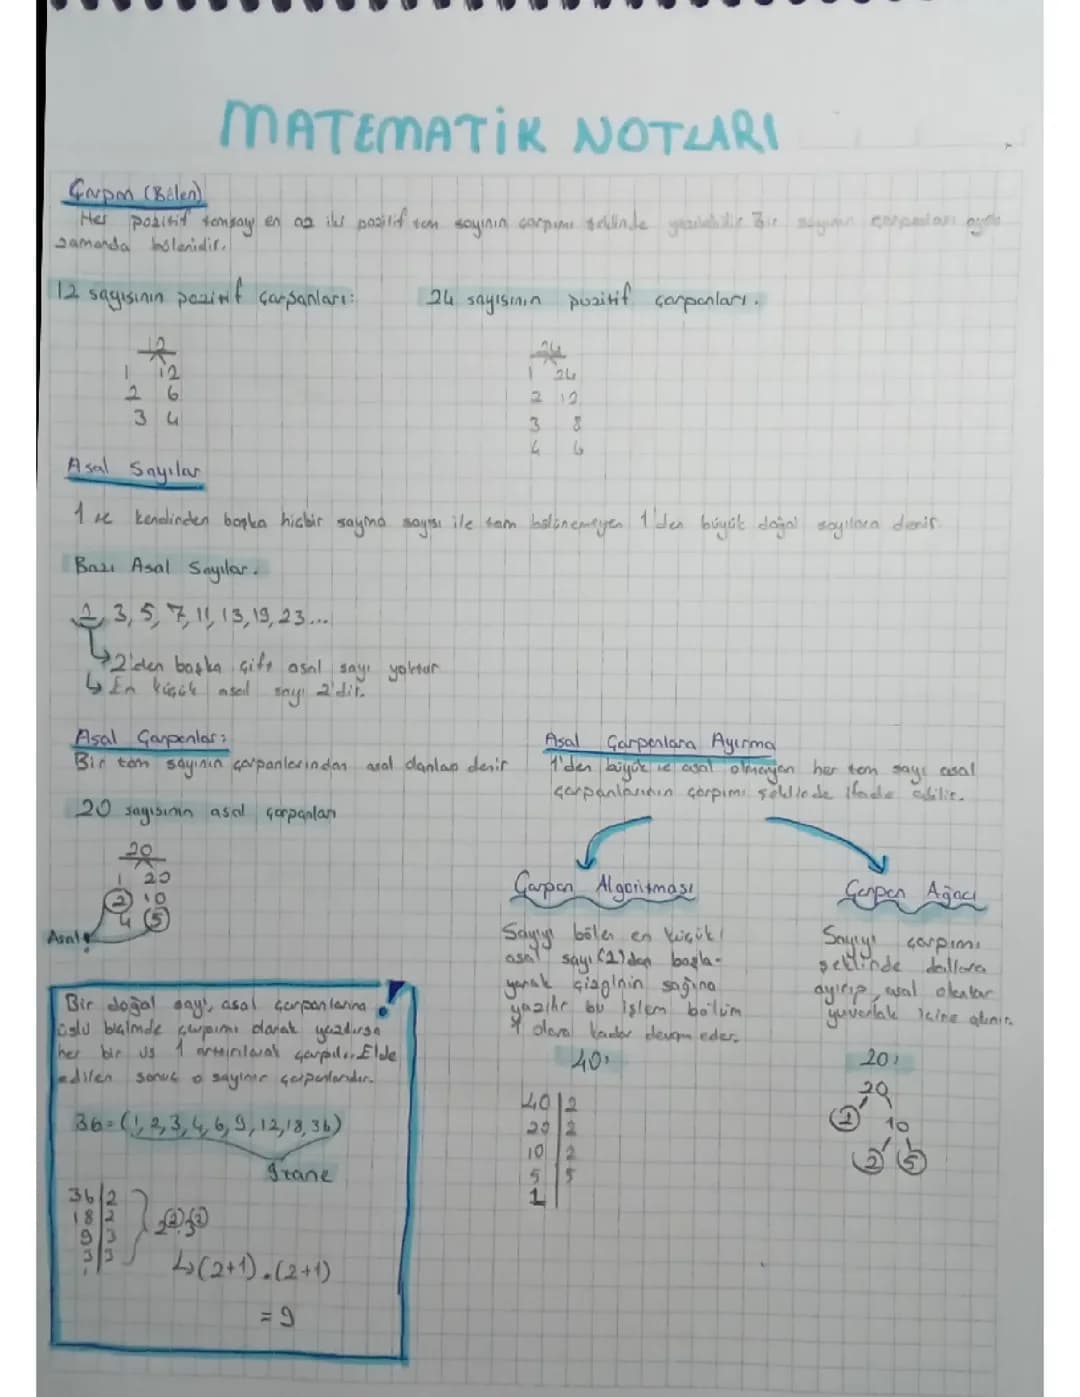 MATEMATİK NOTLARI
Çarpan (Bölen)
Her pozitif tamsayı en az iki pozitif tam sayının çarpımı şeklinde yazılabilir. Bir sayının çarpanları aynı
zamanda bölenidir.
12 sayısının pozitif çarpanları:
24 sayısının pozitif çarpanları.
12
1 12
2 6
3 4
24
1 24
2 12
3 8
4 6
Asal Sayılar
1 ve kendinden başka hiçbir sayma sayısı ile tam bölünemeyen 1'den büyük doğal sayılara denir.
Bazı Asal Sayılar.
2, 3, 5, 7, 11, 13, 19, 23...
2'den başka çift asal sayı yoktur
En küçük asal sayı 2'dir.
Asal Çarpanlar:
Bir tam sayının çarpanlarından asal olanlara denir
20 sayısının asal çarpanları
20
1 20
2 10
4 5
Asal
Asal Çarpanlara Ayırma
1'den büyük ve asal olmayan her tam sayı asal
çarpanlarının çarpımı şeklinde ifade edilir.
Çarpan Algoritması
Sayıyı bölen en küçük
asal sayı (2)'den başla-
yarak çizginin sağına
yazılır bu işlem bölüm
1 olana kadar devam eder.
40:
40 | 2
20 | 2
10 | 2
5 | 5
1
Çarpan Ağacı
Sayıyı çarpımı
şeklinde dallara
ayırıp, asal olanlar
yuvarlak içine alınır.
20:
20
2 10
2 5
Bir doğal sayı, asal çarpanlarına
üslü biçimde çarpımı olarak yazdırsa
her bir üs 1 artırılarak çarpılır. Elde
edilen sonuç o sayının çarpanlarıdır.
36=(1,2,3,4,6,9,12,18,36)
9 tane
36 | 2
18 | 2
9 | 3
3 | 3
1
2² . 3²
↳(2+1).(2+1)
= 9